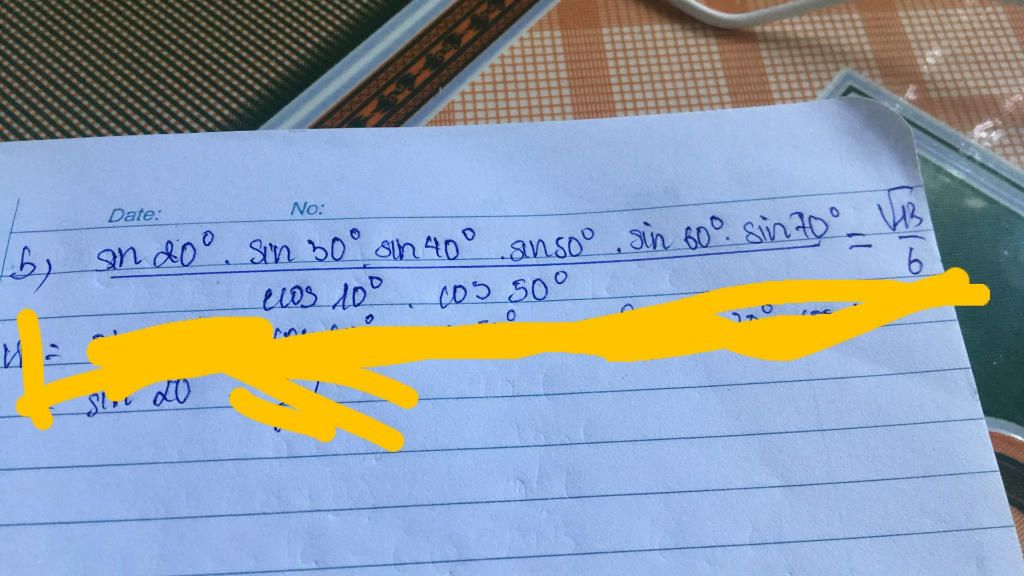 Date: No:
b, sin 20° . sin 30° . sin 40° . sin 50° . sin 60° . sin 70° = √3
cos 10° . cos 50° 6
=
sin 20